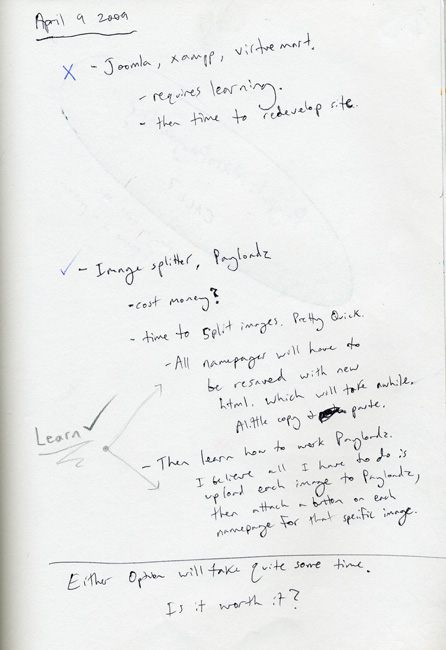 April 9 2009
X - Joomla, xampp, virtuemart.
- requires learning.
- then time to redevelop site.
✓ - Image splitter, Payloadz
- cost money?
- time to split images. Pretty Quick.
- All namepages will have to
be resaved with new
html. which will take awhile.
A little copy & paste.
Learn ✓
- Then learn how to work Payloadz.
I believe all I have to do is
upload each image to Payloadz,
then attach a button on each
namepage for that specific image.
Either Option will take quite some time.
Is it worth it?